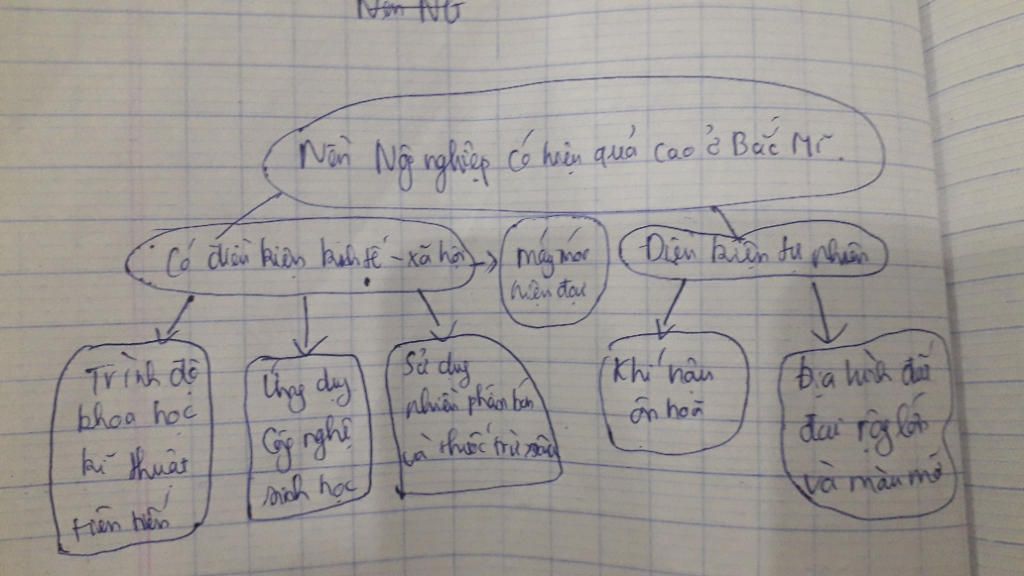 Nền NG
Nền Nông nghiệp có hiệu quả cao ở Bắc Mĩ.
Có điều kiện kinh tế - xã hội
máy móc
hiện đại
Điều kiện tự nhiên
Trình độ
khoa học
kĩ thuật
tiên tiến
Ứng dụng
công nghệ
sinh học
Sử dụng
nhiều phân bón
và thuốc trừ sâu
Khí hậu
ôn hoà
Địa hình đất
đai rộng lớn
và màu mỡ